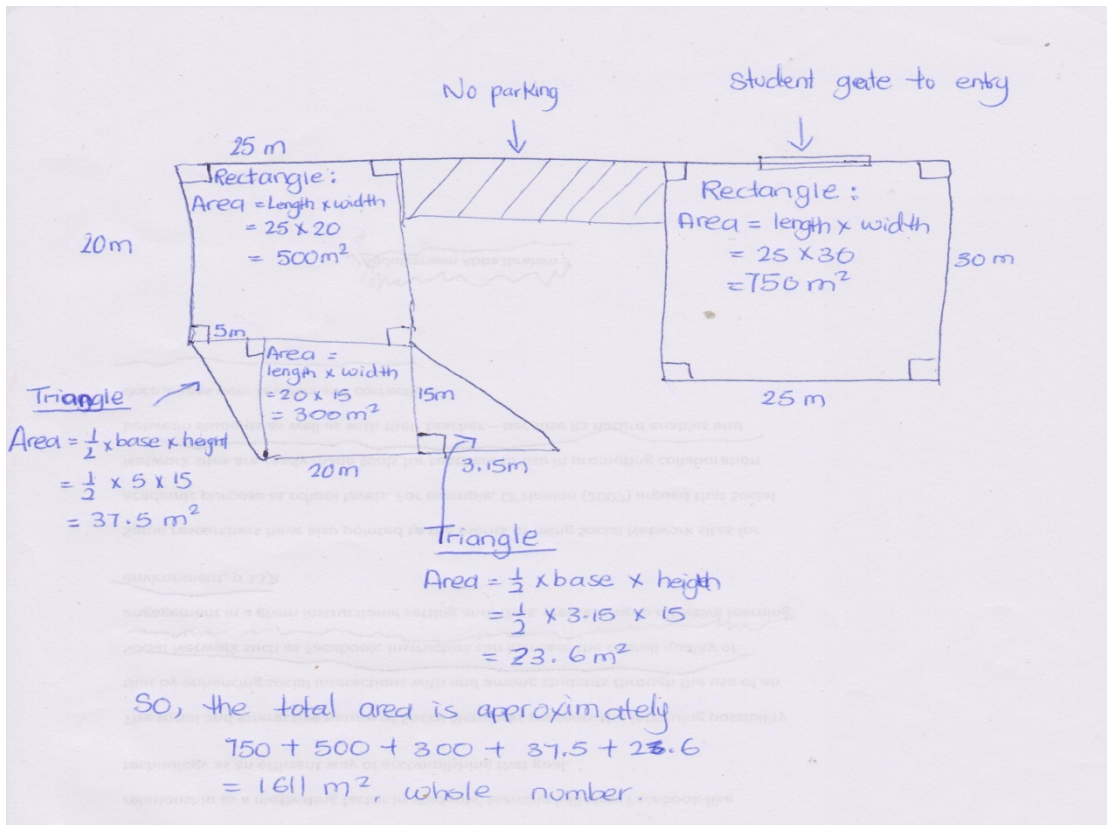 No parking
Student gate to entry
25 m
Rectangle:
Area = Length x width
= 25 x 20
= 500m²
20m
Rectangle :
Area = length x width
= 25 x 30
= 750 m²
30 m
25 m
5m
Area =
length x width
= 20 x 15
= 300 m²
15m
20m
3.15m
Triangle
Area = 1/2 x base x height
= 1/2 x 5 x 15
= 37.5 m²
Triangle
Area = 1/2 x base x heigth
= 1/2 x 3.15 x 15
= 23.6 m²
So, the total area is aproximately
750 + 500 + 300 + 37.5 + 23.6
= 1611 m², whole number